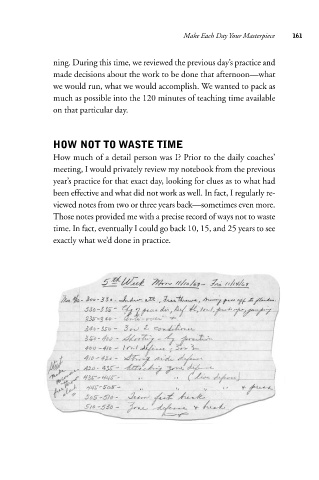 Make Each Day Your Masterpiece 161
ning. During this time, we reviewed the previous day's practice and
made decisions about the work to be done that afternoon—what
we would run, what we would accomplish. We wanted to pack as
much as possible into the 120 minutes of teaching time available
on that particular day.
HOW NOT TO WASTE TIME
How much of a detail person was I? Prior to the daily coaches'
meeting, I would privately review my notebook from the previous
year's practice for that exact day, looking for clues as to what had
been effective and what did not work as well. In fact, I regularly re-
viewed notes from two or three years back—sometimes even more.
Those notes provided me with a precise record of ways not to waste
time. In fact, eventually I could go back 10, 15, and 25 years to see
exactly what we'd done in practice.
5th Week Mon
300-330- Free throws,
330-335-
335-340-
340-350- 3 on 2
350-400- Shooting - by position
400-410- 1 on 1 defense, 3 on 3
410-420- Strong side defense
420-435- Attacking zone defense
435-445- " " (live defense)
445-505- " " " " + press
505-510- Team fast break
510-530- Zone defense & break